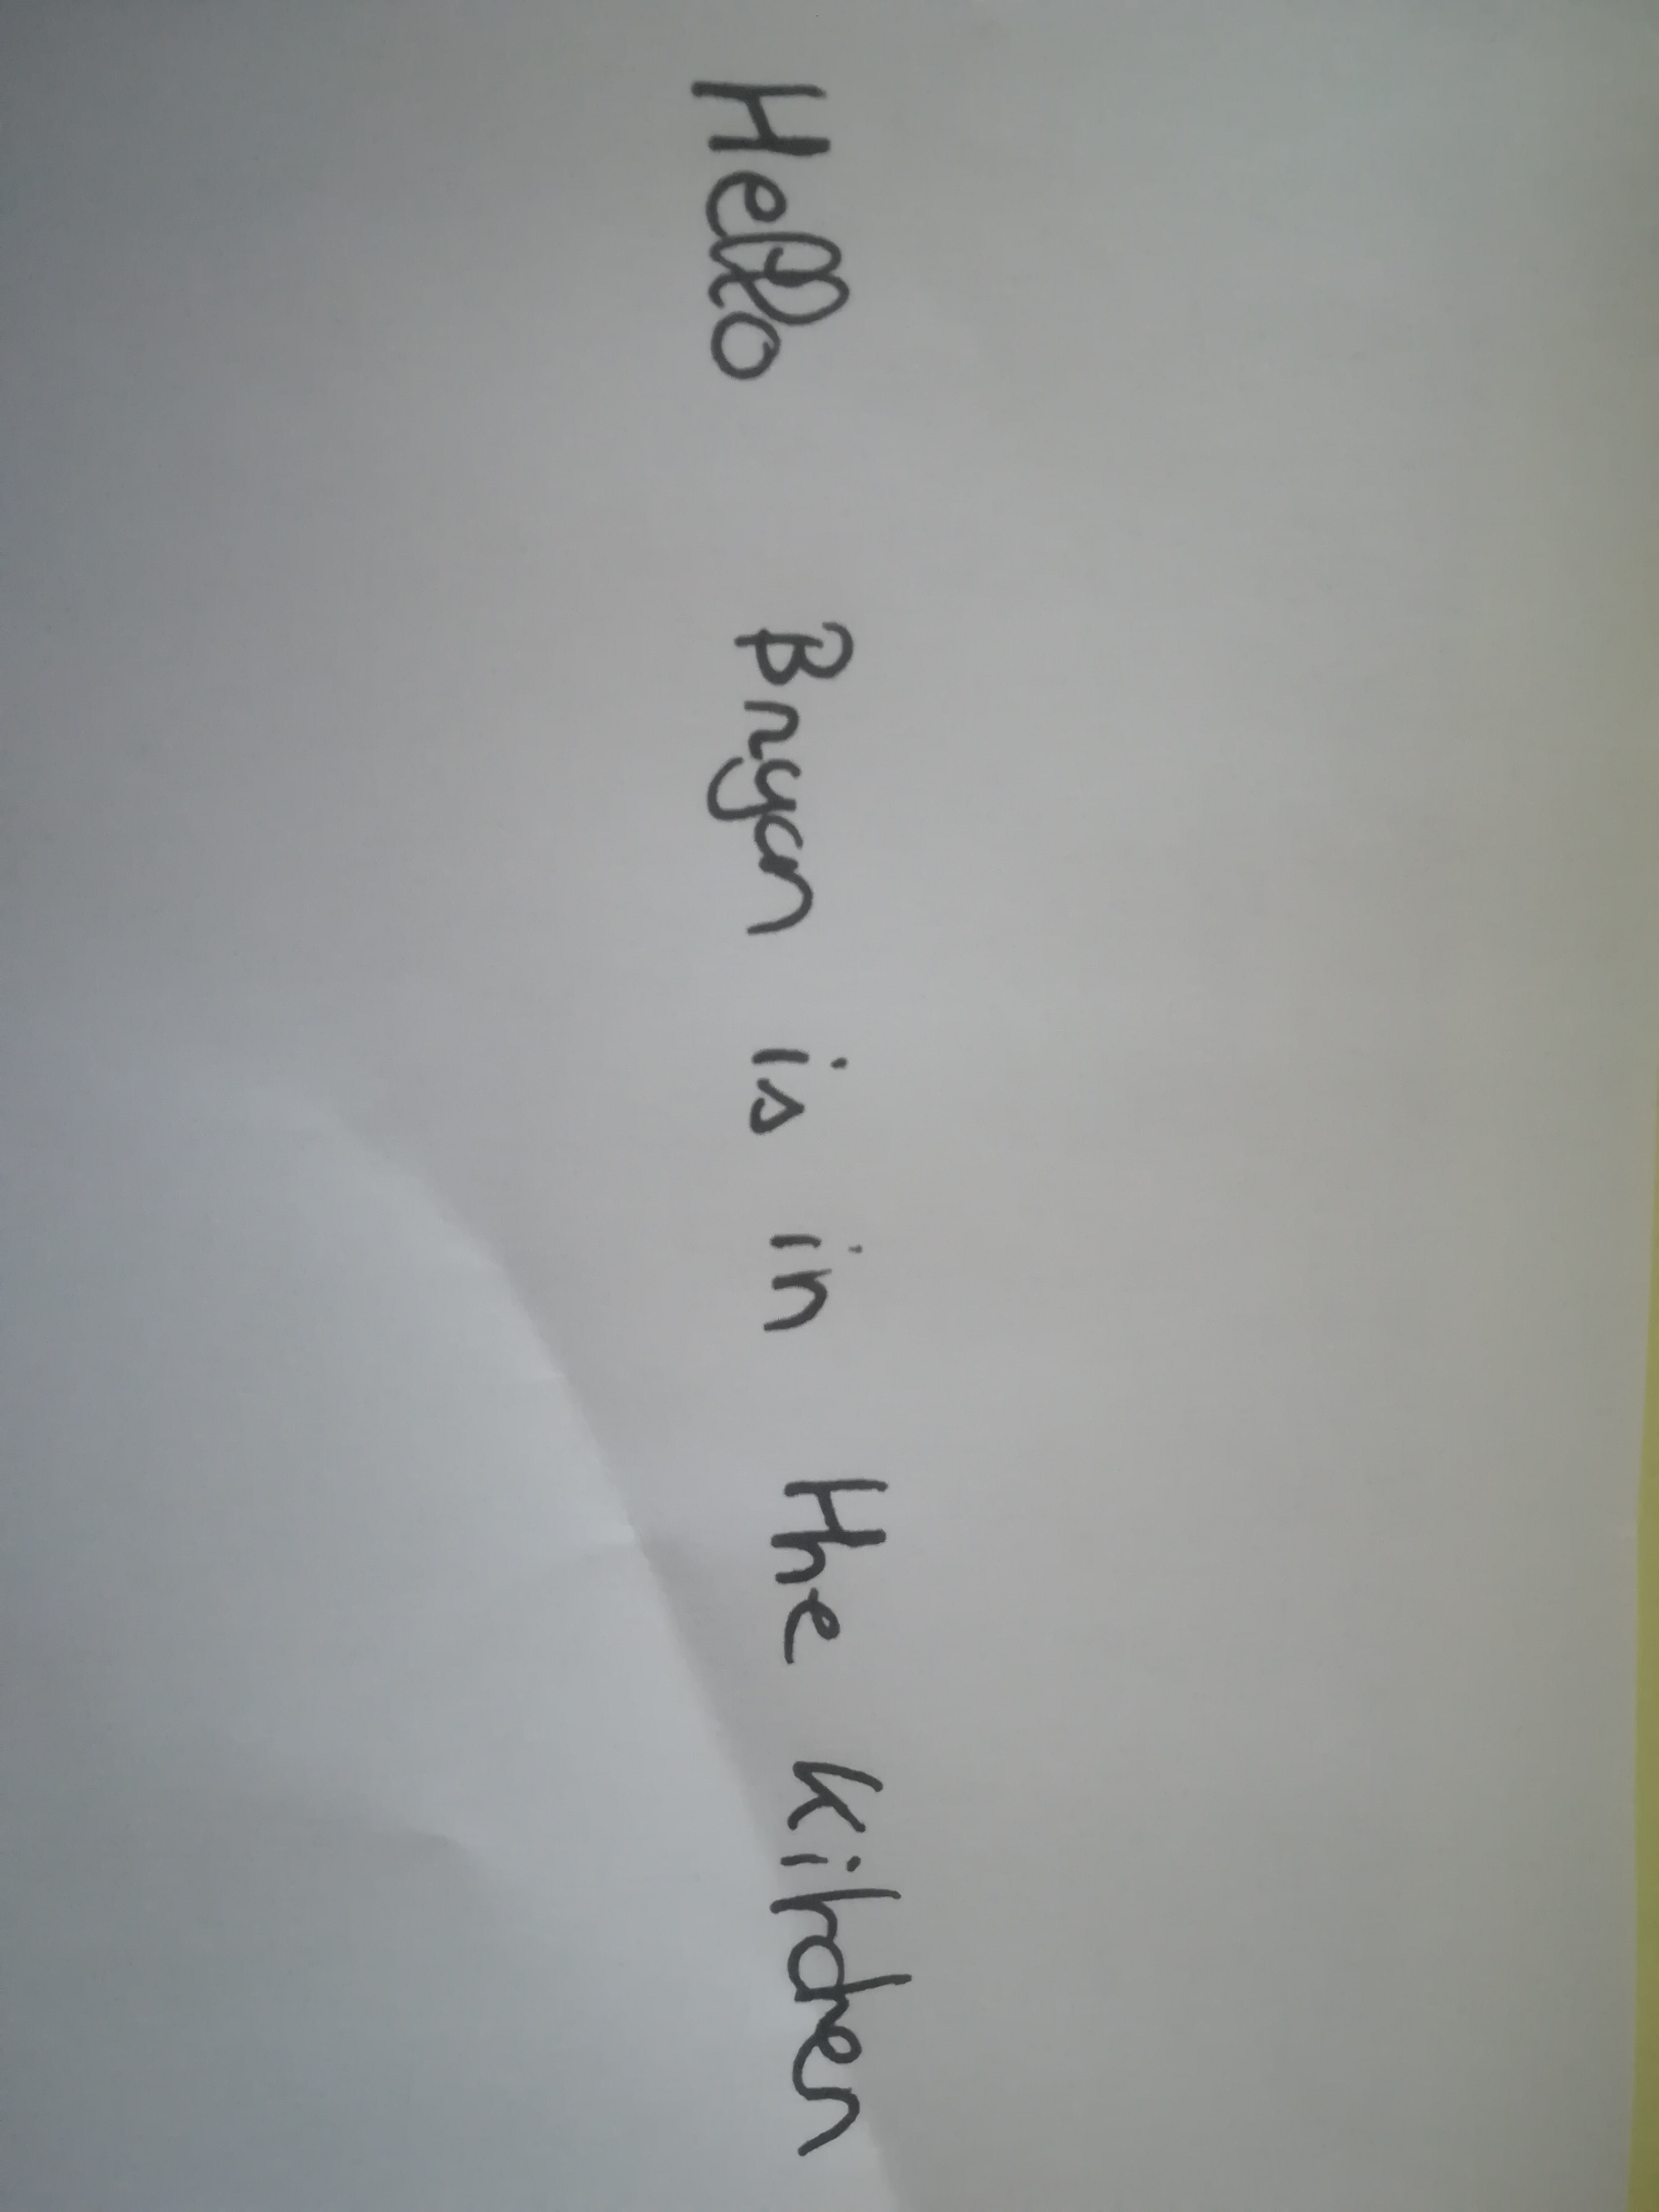 Hello Bryan is in the kitchen